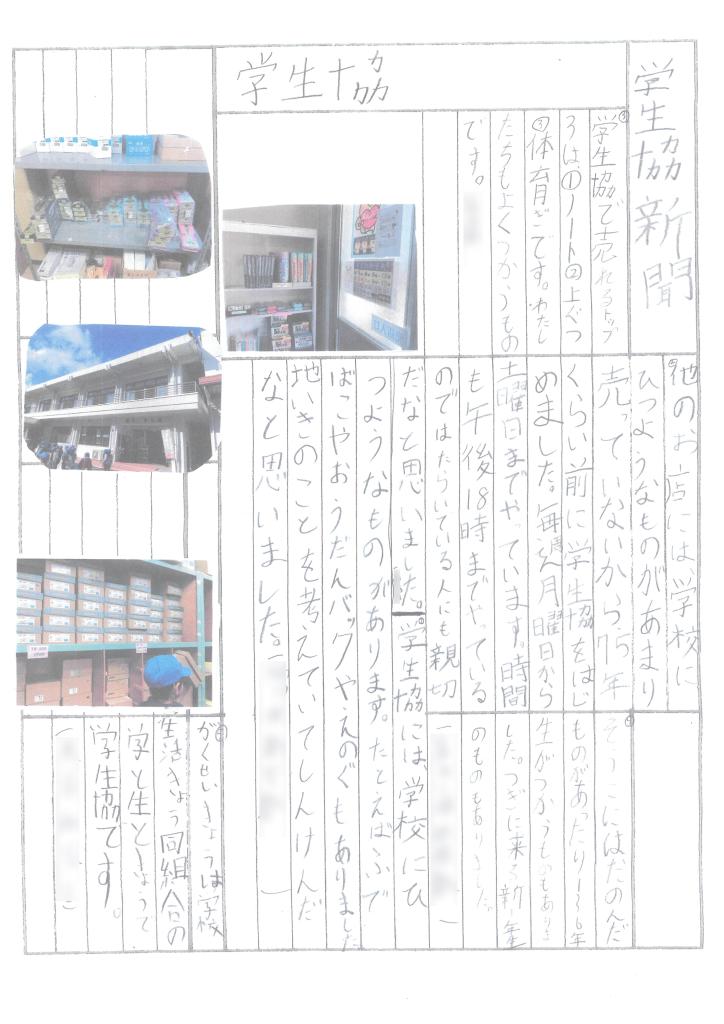 学生協新聞
学生協
③学生協で売れるトップ
3は、①ノート②上ぐつ
③体育ぎです。わたし
たちもよくつかうもの
です。
④他のお店には、学校に
ひつようなものがあまり
売っていないから75年
くらい前に学生協をはじ
めました。毎週月曜日から
土曜日までやっています。時間
も午後18時までやっている
のではたらいている人にも親切
だなと思いました。学生協には、学校にひ
つようなものがあります。たとえばふで
ばこやおうだんバックやえのぐもありました
地いきのことを考えていてしんけんだ
なと思いました。
そうこにはたのんだ
ものがあったり1~6年
生がつかうものもありま
した。つぎに来る新一年生
のものもありました。
がくせいきょうは学校
生活きょう同組合の
学と生ときょうで
学生協です。